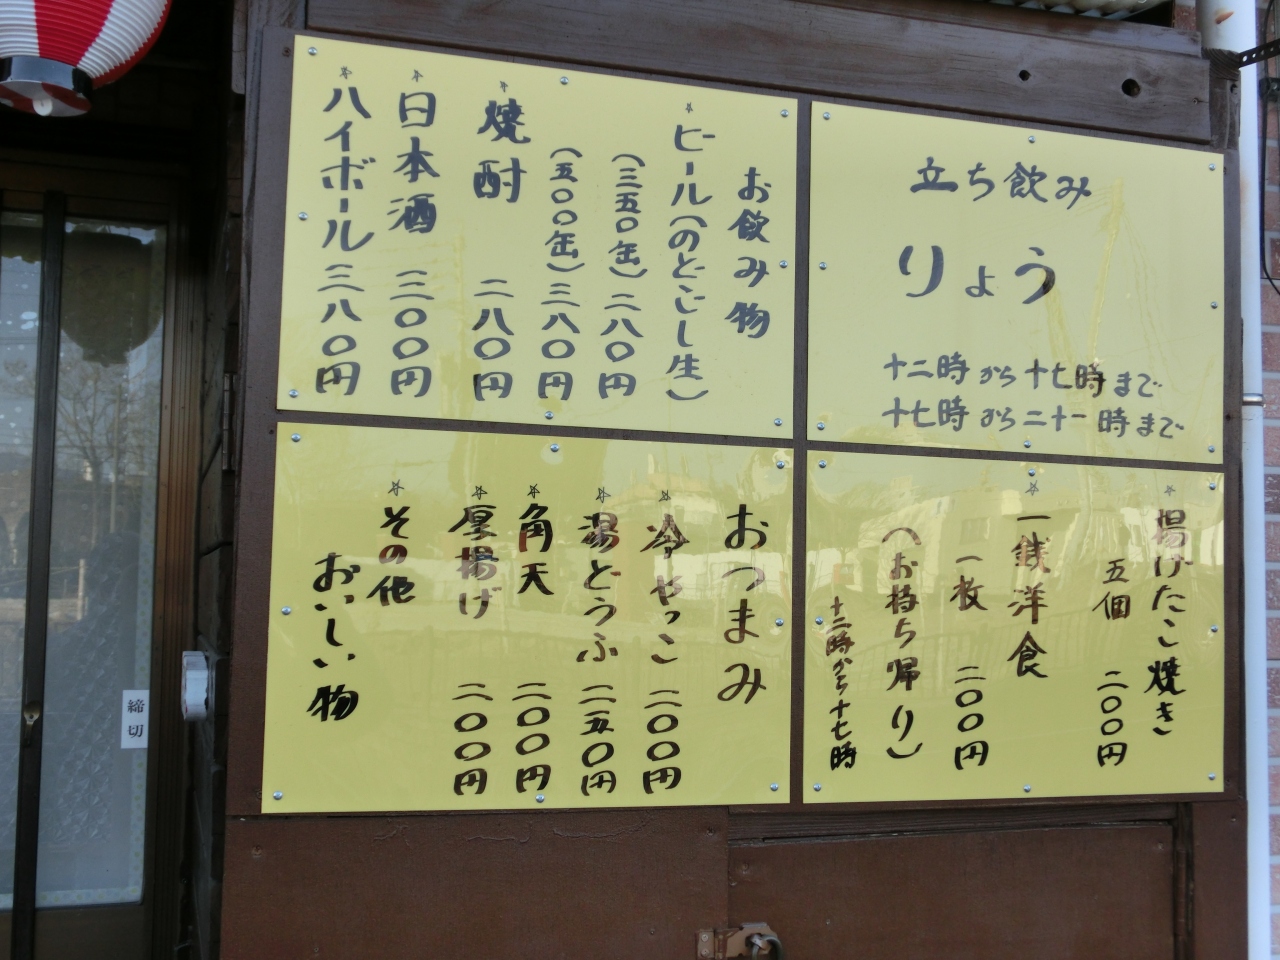 立ち飲み
りょう
十二時から十七時まで
十七時から二十一時まで
お飲み物
ビール(のどごし生)
(三五〇缶)二八〇円
(五〇〇缶)三八〇円
焼酎 二八〇円
日本酒 三〇〇円
ハイボール 三八〇円
揚げたこ焼き
五個 二〇〇円
一銭洋食
一枚 二〇〇円
(お持ち帰り)
十二時から十七時
おつまみ
冷やっこ 二〇〇円
湯どうふ 二五〇円
角天 二〇〇円
厚揚げ 二〇〇円
その他
おいしい物
締切